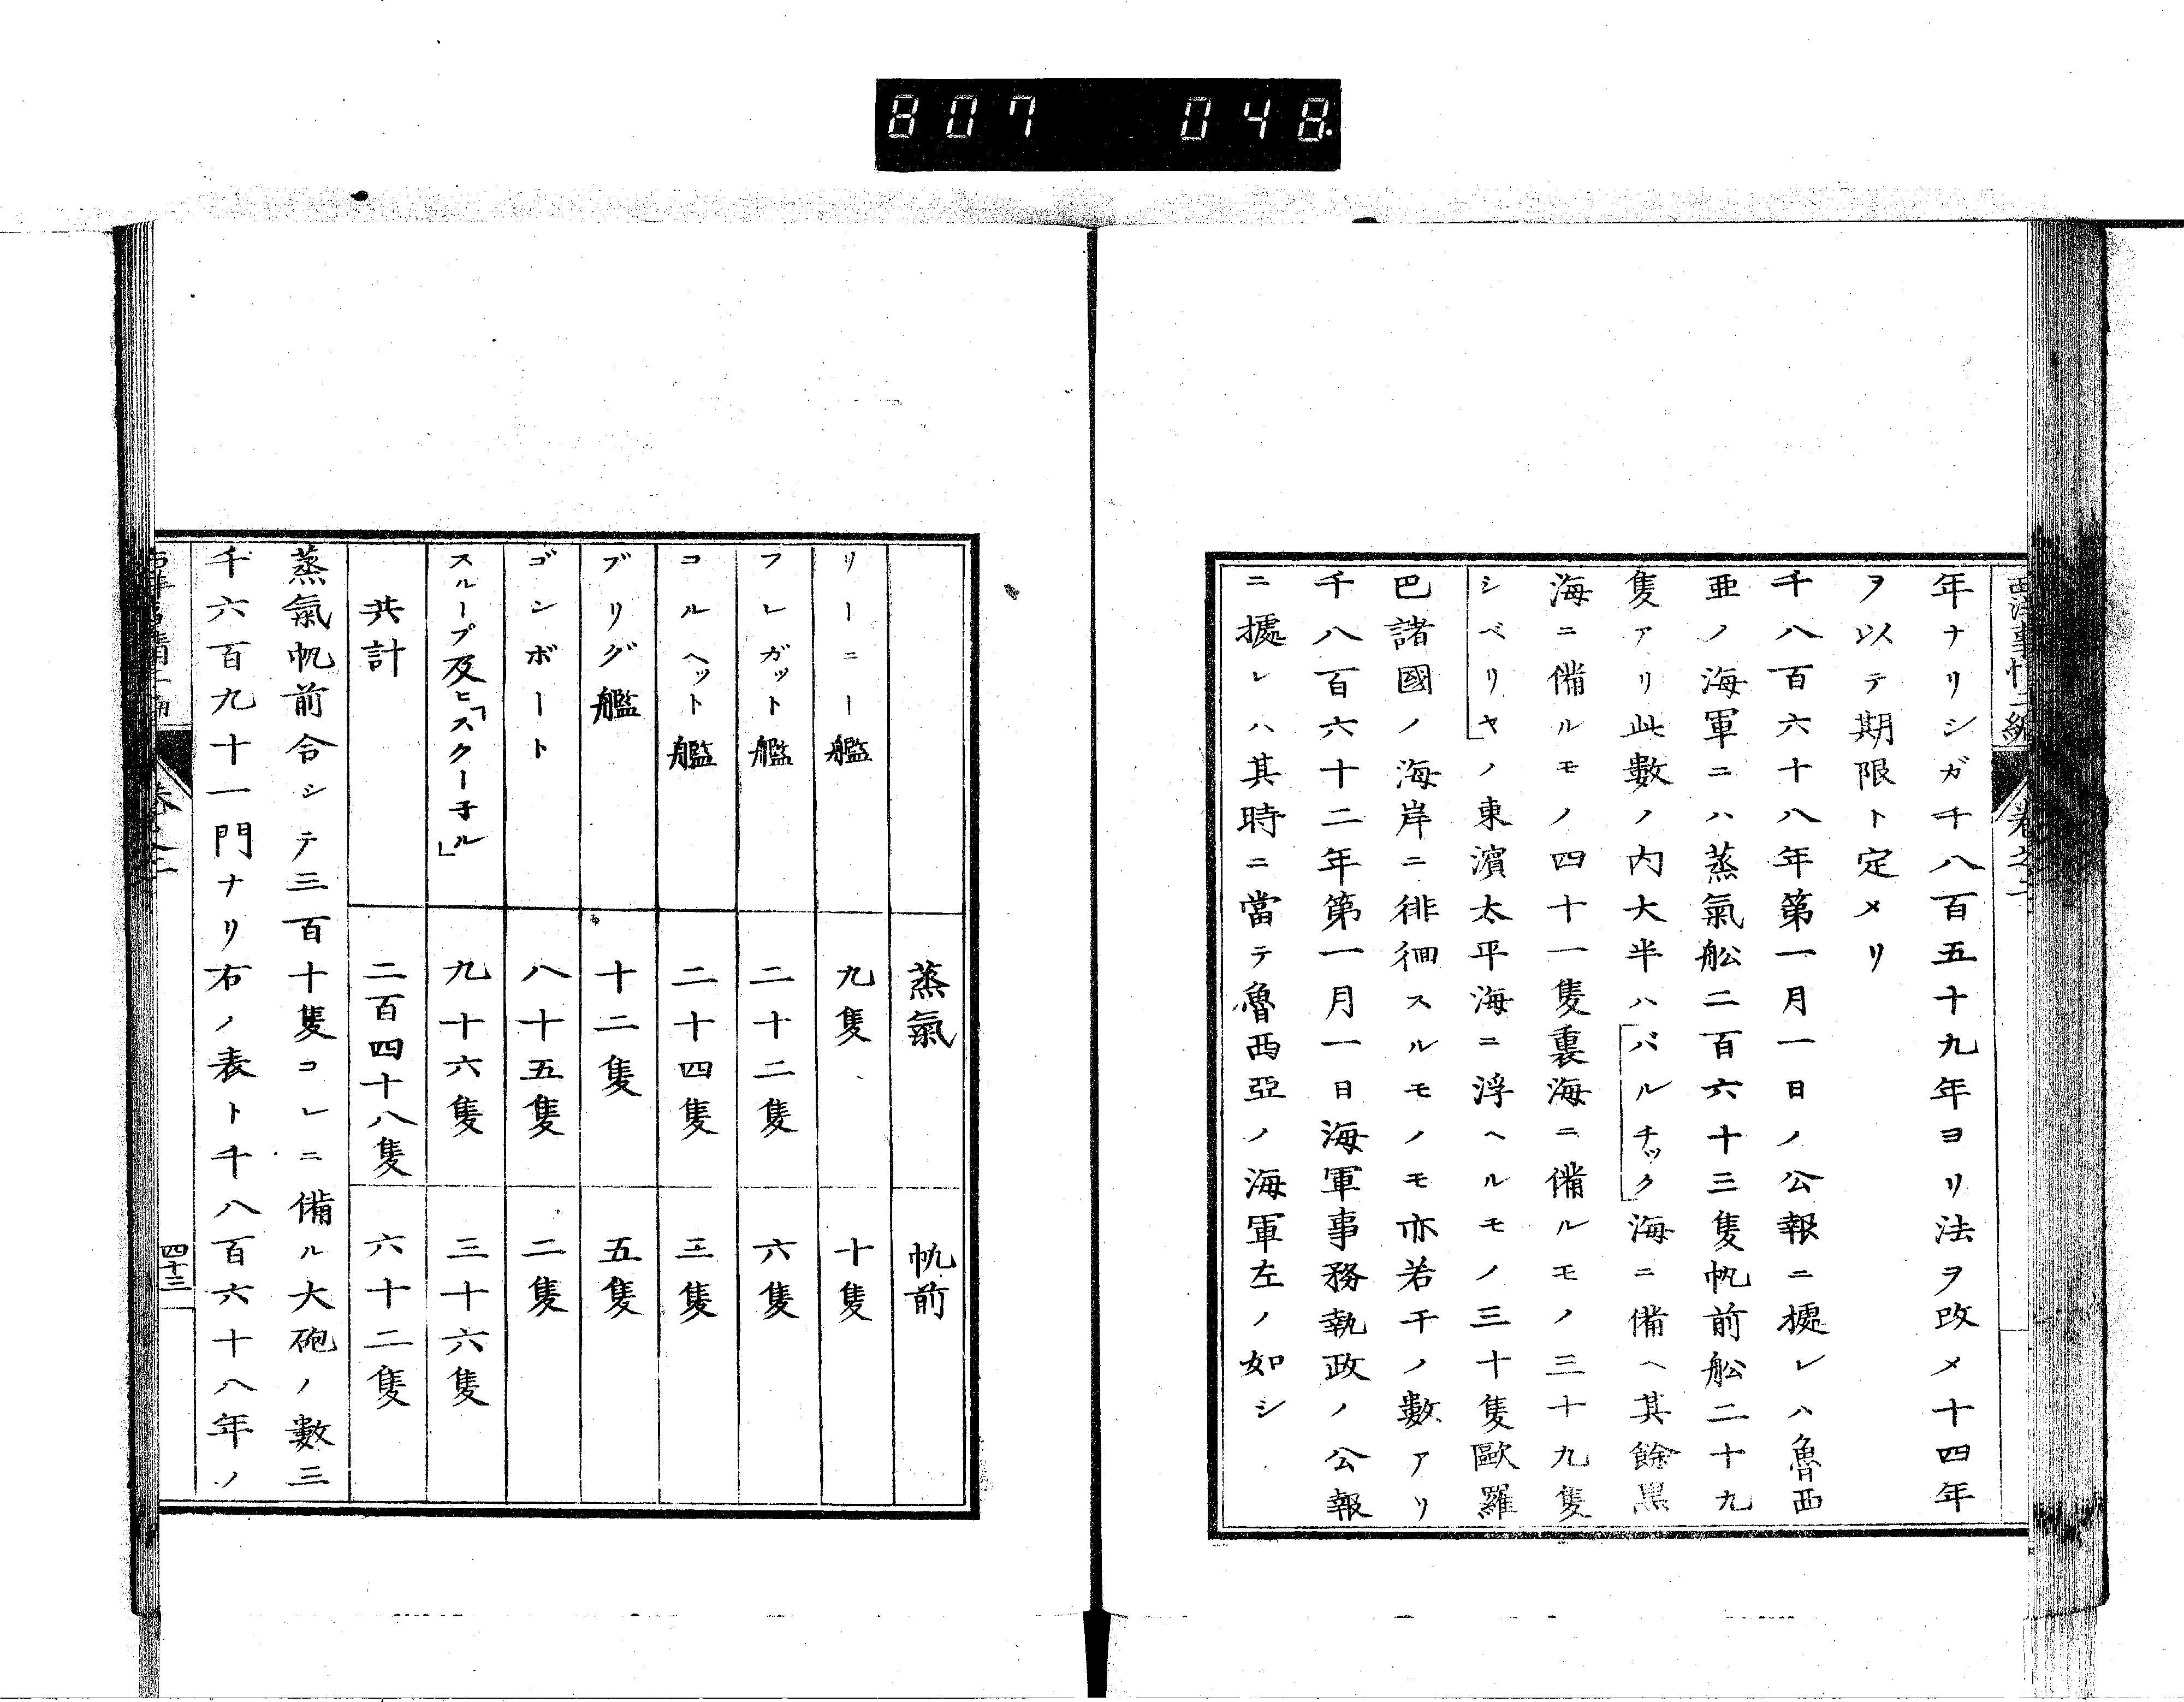 807 048.
年ナリシガ千八百五十九年ヨリ法ヲ改メ十四年
ヲ以テ期限ト定メリ
千八百六十八年第一月一日ノ公報ニ據レハ魯西
亜ノ海軍ニハ蒸氣舩二百六十三隻帆前舩二十九
隻アリ此數ノ内大半ハ「バルチック」海ニ備ヘ其餘黒
海ニ備ルモノ四十一隻裏海ニ備ルモノ三十九隻
「シベリヤ」ノ東濱太平海ニ浮ヘルモノ三十隻歐羅
巴諸國ノ海岸ニ徘徊スルモノモ亦若干ノ數アリ
千八百六十二年第一月一日海軍事務執政ノ公報
ニ據レハ其時ニ當テ魯西亞ノ海軍左ノ如シ
蒸氣 帆前
リーニー艦 九隻 十隻
フレガット艦 二十二隻 六隻
コルヘット艦 二十四隻 三隻
ブリグ艦 十二隻 五隻
ゴンボート 八十五隻 二隻
スループ及ヒ「スクー子ル」 九十六隻 三十六隻
共計 二百四十八隻 六十二隻
蒸氣帆前合シテ三百十隻コレニ備ル大砲ノ數三
千六百九十一門ナリ右ノ表ト千八百六十八年ノ
四十三